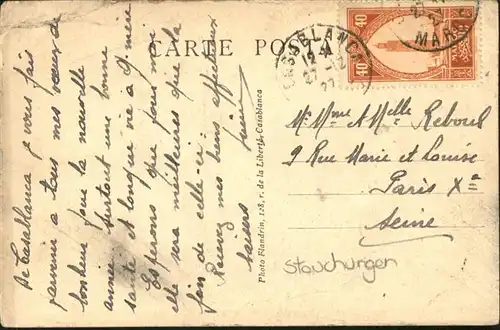 CARTE POSTA
De Casablanca je vous fais
parvenir à tous mes vœux de
bonheur pour la nouvelle
année, surtout une bonne
santé et longue vie à g. mère
Esperons que pour moi
elle sera meilleures que la
fin de celle-ci
Recevez mes biens affectueux
baisers
Photo Flandrin, 128, r. de la Liberté, Casablanca
CASABLANCA
12
27 -12
27
40
40
MAROC
Mr Mme & Melle Reboul
9 Rue Marie et Louise
Paris Xe
Seine
Stauchungen